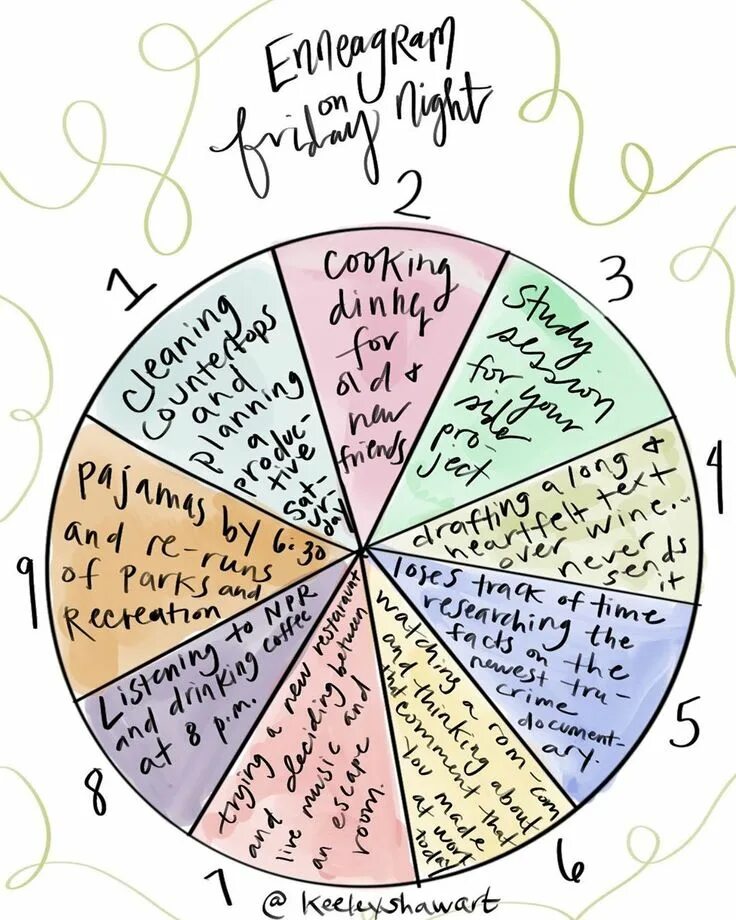 Enneagram
on
friday night
1
cleaning
countertops
and
planning
a
produc-
tive
Sat-
urday
2
cooking
dinner
for
old &
new
friends
3
study
session
for your
side
pro-
ject
4
drafting a long &
heartfelt text
over wine...
never
sends
it
5
loses track of time
researching the
facts on the
newest tru-
crime
document-
ary.
6
watching a rom-com
and thinking about
that comment that
you made
at work
today
7
trying a new restaraunt
and deciding between
live music and
an escape
room.
8
Listening to NPR
and drinking coffee
at 8 p.m.
9
pajamas by 6:30
and re-runs
of Parks and
Recreation
@keeleyshawart